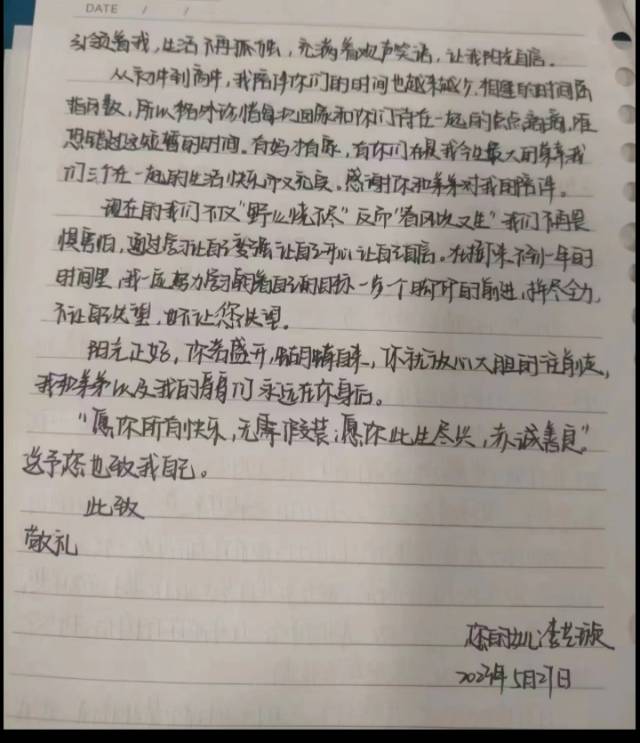 DATE / /
引领着我，生活不再孤独，充满着欢声笑语，让我阳光自信。
从初中到高中，我陪伴你们的时间也越来越少，相逢的时间屈
指可数，所以格外珍惜每次回家和你们待在一起的点点滴滴，唯
恐错过这短暂的时间。有妈才有家，有你们在是我今生最大的幸幸我
们三个在一起的生活快乐而又充实。感谢你和弟弟对我的陪伴。
现在的我们不仅“野火烧不尽”反而“春风吹又生”我们不再畏
惧害怕，通过学习让自己变强让自己开心让自己自信。在接下来不到一年的
时间里，我一定努力学习朝着自己的目标一步一个脚印的前进，拼尽全力，
不让自己失望，也不让您失望。
阳光正好，你若盛开，蝴蝶自来，你就放心大胆的往前走，
我和弟弟以及我的舅舅们永远在你身后。
“愿你所有快乐，无需假装；愿你此生尽兴，赤诚善良”
送予您也致我自己。
此致
敬礼
您的女儿
5月21日